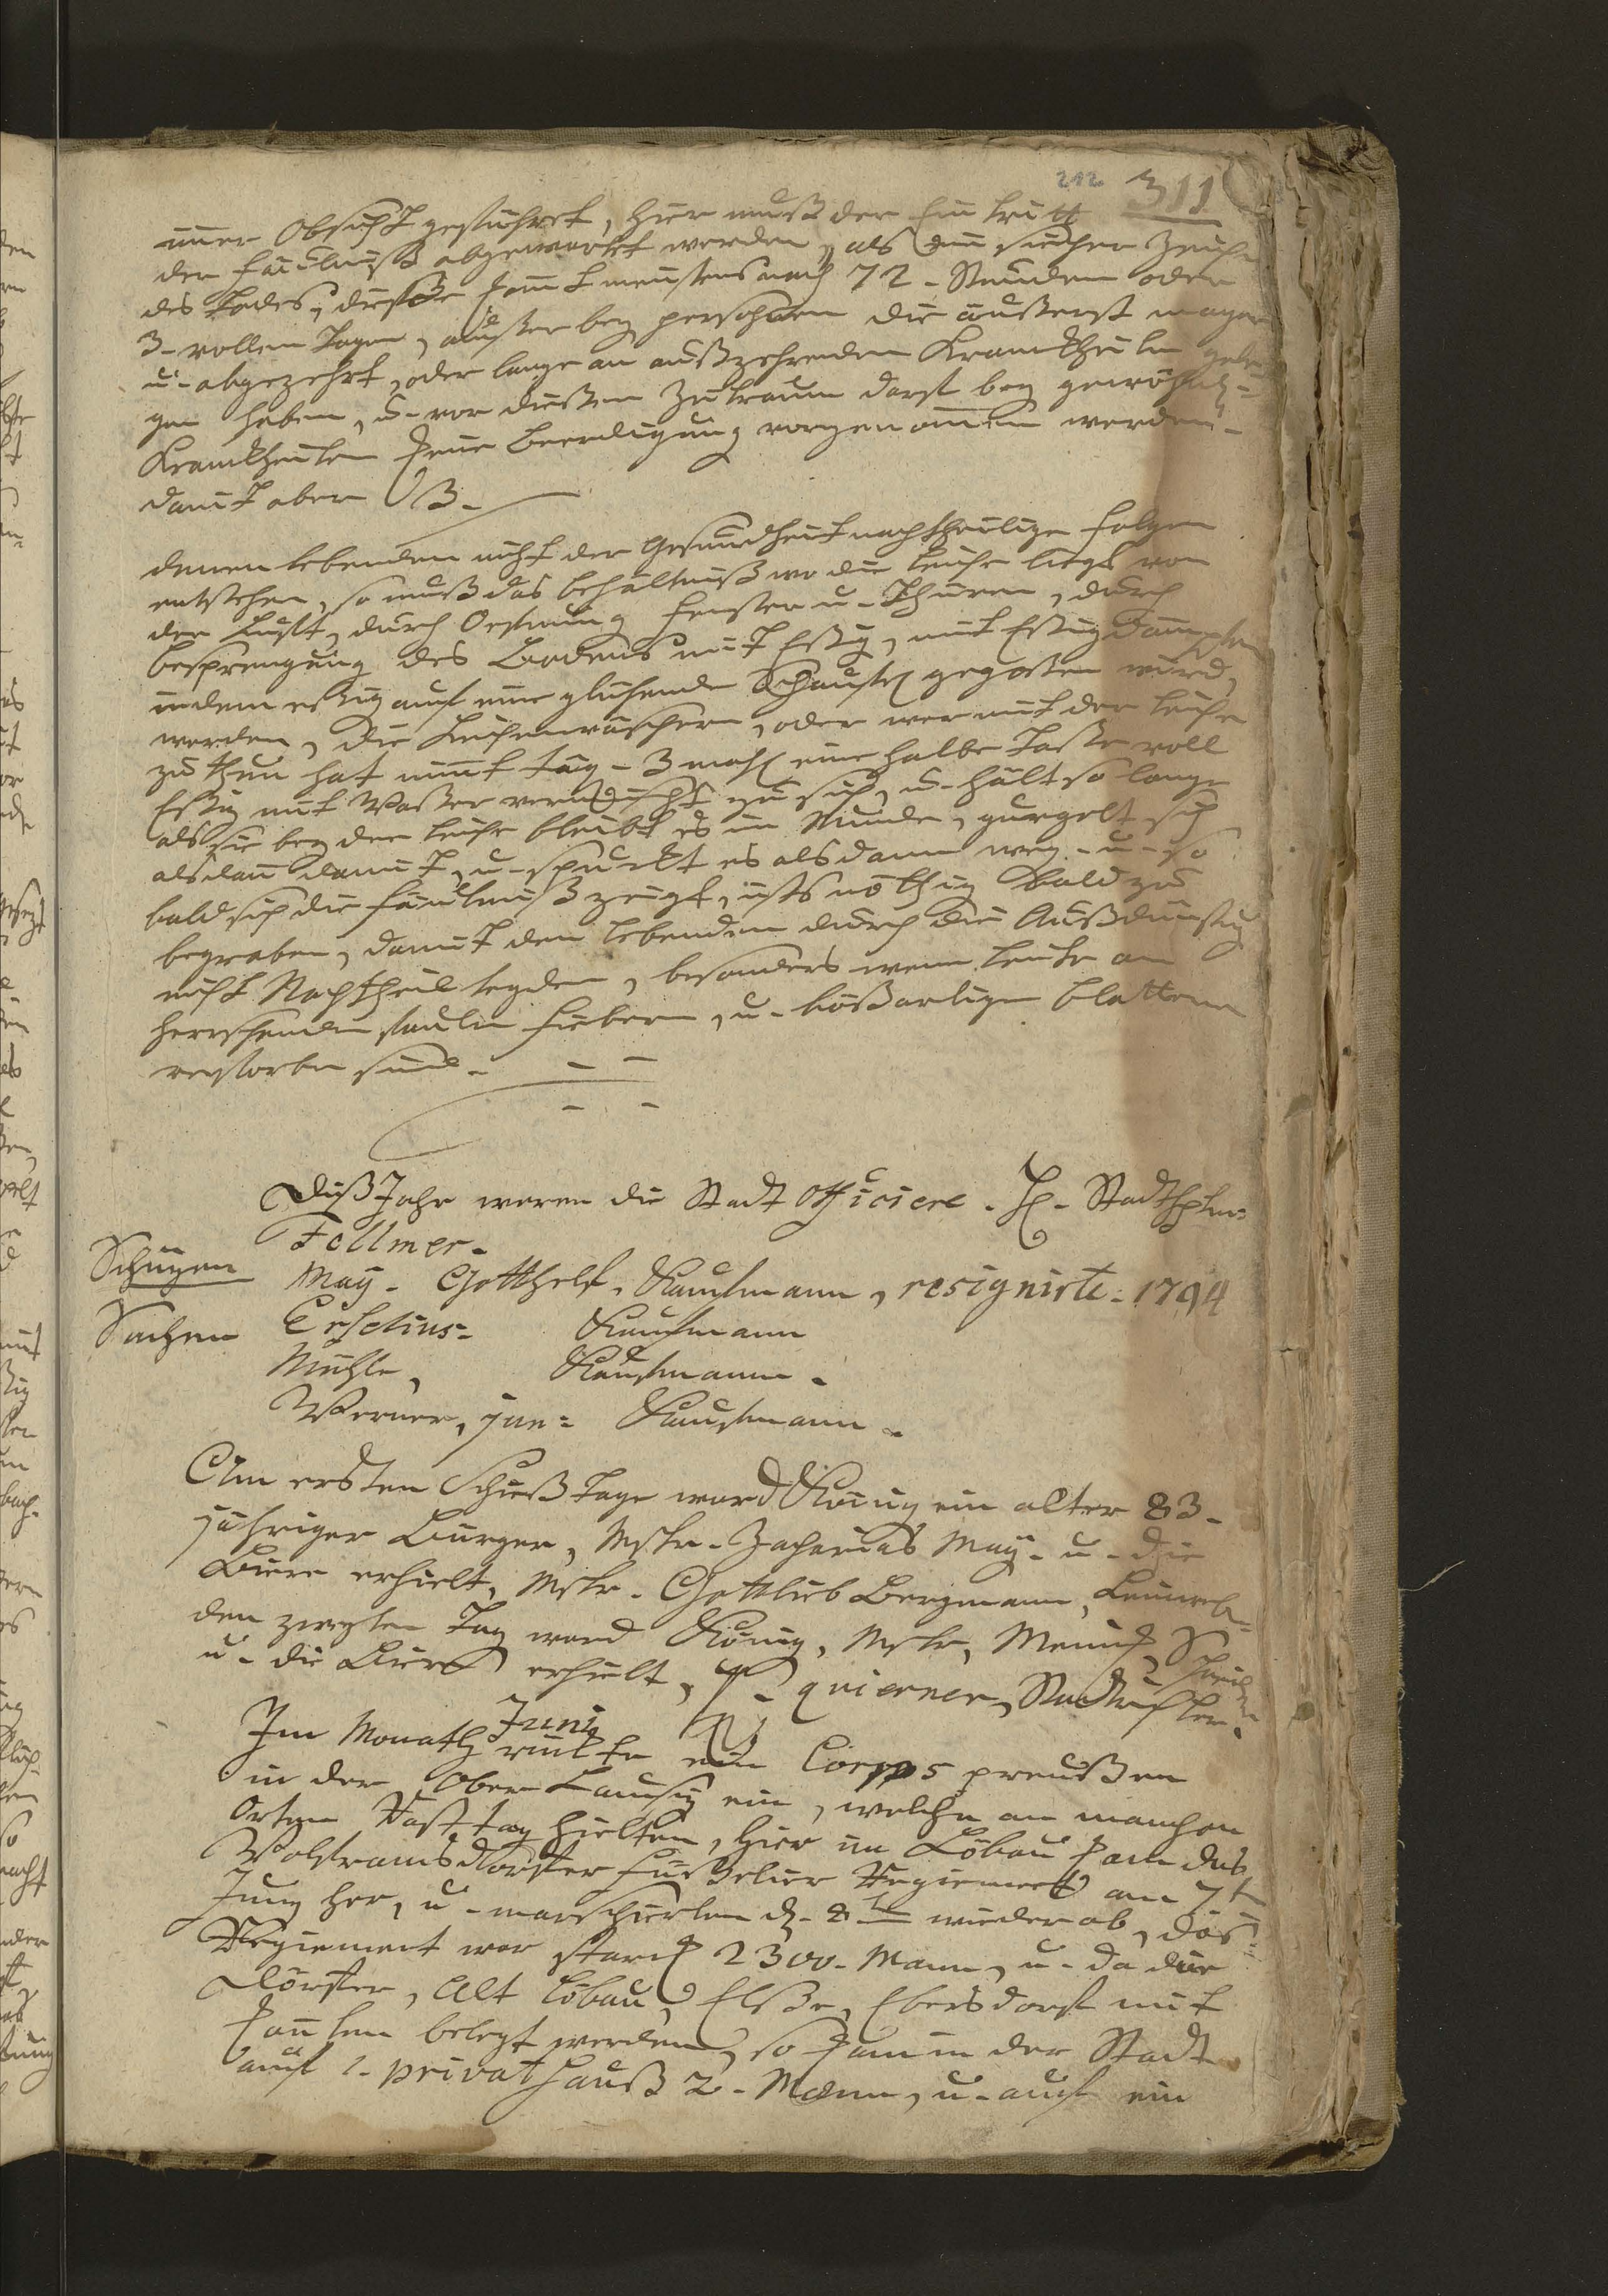 212 311
einer Obsicht geführet, hier muß der Eintritt
der Fäulniß abgewartet werden, als ein sicher Zeichen
des Todes, dieße komt meistens nach 72 - Stunden oder
3 - vollen Tagen, außer bey persohnen die äußerst mager
u - abgezehrt, oder lange an außzehrenden Kranckheiten gele-
gen haben, u - vor dießen Zeitraum darf bey gewöhnl:
Kranckheiten keine Beerdigung vorgenomen werden -
damit aber
denen lebenden nicht der Gesundheit nachtheilige Folgen
entstehen, so muß das Behältniß wo die Leiche liegt von
der Lufft, durch Oefnung Fenster u - Thüren, durch
Besprengung des Bodens mit Eßig, mit Eßig Dämpfen
indem eßig auf eine glühende Schaufel gegoßen wird,
werden, die Leichenwäscherin, oder wer mit der Leiche
zu thun hat nimt täg - 3 mahl eine halbe Taße voll
Eßig mit Waßer vermischt zu sich, u - hält so lange
als sie bey der Leiche bleibt es im Munde, gurgelt sich
alsdan damit, u - spuckt es alsdann weg - u - so
bald sich die Fäulniß zeigt, ists nöthig bald zu
begraben, damit den lebenden durch die Außdünstung
nicht Nachtheil leyden, besonders wenn Leute an
herrschenden faulen Fiebern, u - bößartigen Blattern
verstorben sind -
Diß Jahr waren die Stadt Officiere - H - Stadthptm:
Follmer -
Schüzen May - Gotthelf, Kaufmann, resignirte - 1794
Sachen Eschelius - Kaufmann
Mühle, Kaufmann -
Werner, jun: Kaufmann -
Am ersten Schieß Tage ward König ein alter 83 -
jähriger Bürger, Mstr - Zacharias May - u - die
Biere erhielt, Mstr - Gottlieb Bergmann, Leinweb:
den zweyten Tag ward König, Mstr,
u - die Biere erhielt, H -
Im Monath Juny rückte ein Corpps preußen
in der Ober Lausiz ein, welche an manchen
Orten Rast tag hielten, hier in Löbau kam das
Wolframsdorfer Füßelier Regiement am 7t
Juny her, u - marschierten d - 8ten wieder ab, das
Regiement war starck 2300 - Mann, u - da die
Dörffer, Alt Löbau, Elße, Ebersdorf mit
leuten belegt werden, so kam in der Stadt
auf 1 - privat Hauß 2 - Mann, u - auf ein